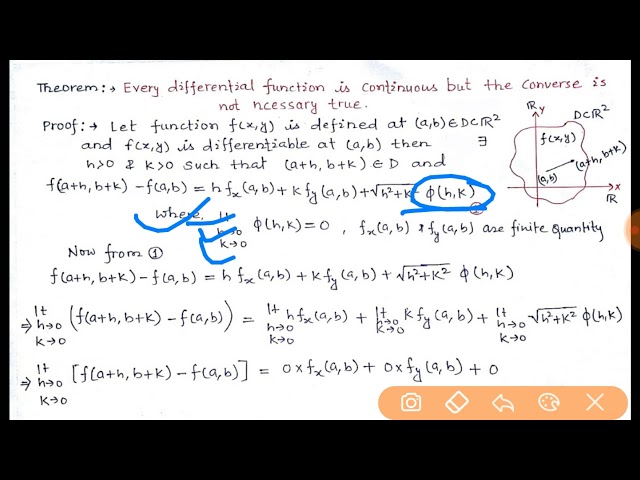 Theorem:→ Every differential function is continuous but the converse is
not ncessary true.
Proof:→ Let function f(x,y) is defined at (a,b) ∈ D⊂ℝ²
and f(x,y) is differentiable at (a,b) then ∃
h>0 & k>0 such that (a+h, b+k) ∈ D and
f(a+h, b+k) - f(a,b) = h fx(a,b) + k fy(a,b) + √h²+k² ϕ(h,k)
①
where, lt h→0 k→0 ϕ(h,k) = 0 , fx(a,b) & fy(a,b) are finite quantity
Now from ①
f(a+h, b+k) - f(a,b) = h fx(a,b) + k fy(a,b) + √h²+k² ϕ(h,k)
⇒ lt h→0 k→0 (f(a+h, b+k) - f(a,b)) = lt h→0 k→0 h fx(a,b) + lt h→0 k→0 k fy(a,b) + lt h→0 k→0 √h²+k² ϕ(h,k)
⇒ lt h→0 k→0 [f(a+h, b+k) - f(a,b)] = 0 x fx(a,b) + 0 x fy(a,b) + 0
ℝ Y
D⊂ℝ²
f(x,y)
(a+h, b+k)
(a,b)
X
ℝ